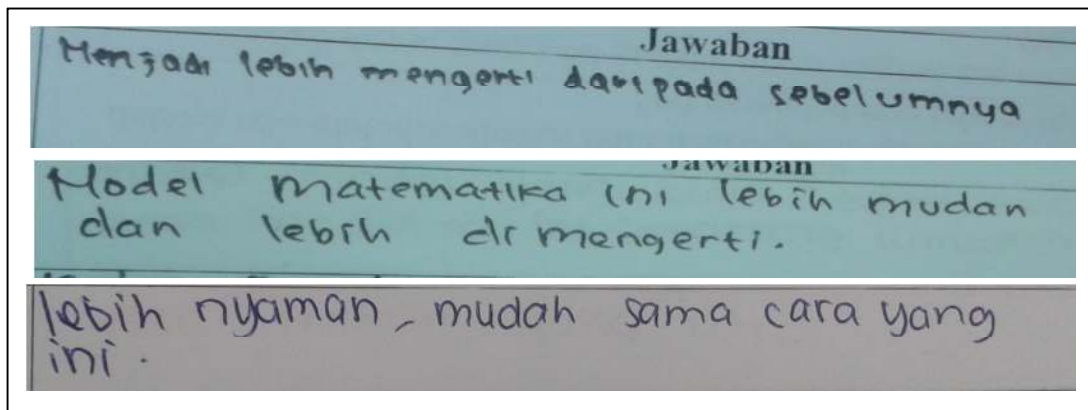 Jawaban
Menjadi lebih mengerti daripada sebelumnya
Jawaban
Model matematika ini lebih mudah
dan lebih di mengerti.
lebih nyaman, mudah sama cara yang
ini.